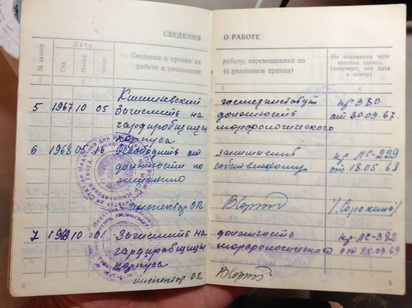 СВЕДЕНИЯ О РАБОТЕ
№ записи
Дата
Год
Месяц
Число
Сведения о приеме на
работу, перемещениях по
работе и увольнении
(с указанием причин)
На основании чего
внесена запись
(документ, его дата
и номер)
Кишиневский госмединститут
5 1967 10 05 Зачислить на должность пр 380
гардеробщицы морфологического от 30.09.67
корпуса
6 1968 05 18 Освободить от занимаемой пр №-299
должности по собственному от 18.05.68
желанию
инспектор ОК
7 10 01 Зачислить на должность пр №-382
гардеробщицы морфологического от 25.09.69
корпуса
инспектор ОК